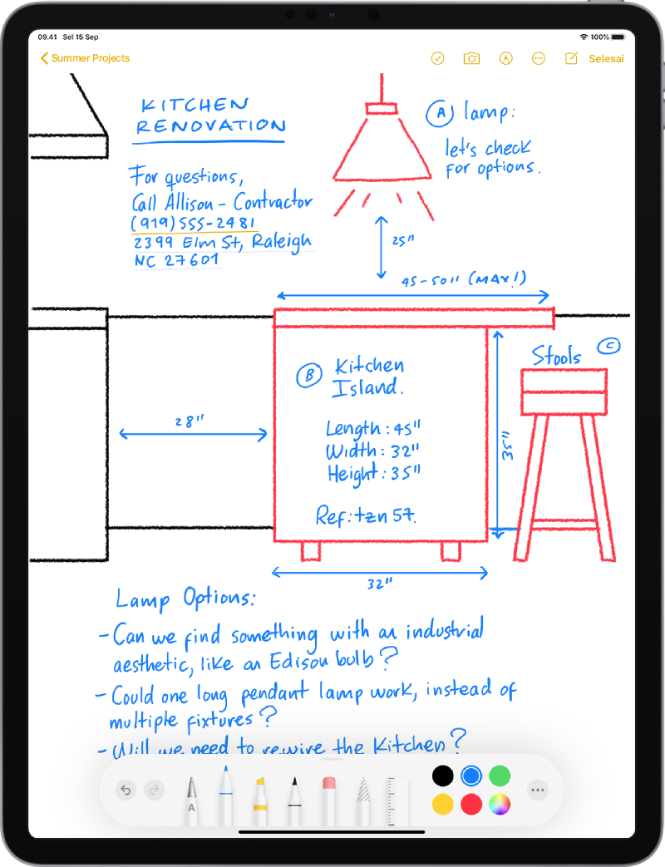 09.41 Sel 15 Sep
100%
Summer Projects
Selesai
KITCHEN
RENOVATION
For questions,
Call Allison - Contractor
(919)555-2481
2399 Elm St, Raleigh
NC 27601
A lamp:
let's check
for options.
25"
45-50" (MAX!)
B Kitchen
Island.
Length: 45"
Width: 32"
Height: 35"
Ref: tzn 57.
28"
35"
Stools C
32"
Lamp Options:
- Can we find something with an industrial
aesthetic, like an Edison bulb?
- Could one long pendant lamp work, instead of
multiple fixtures?
- Will we need to rewire the Kitchen?
A